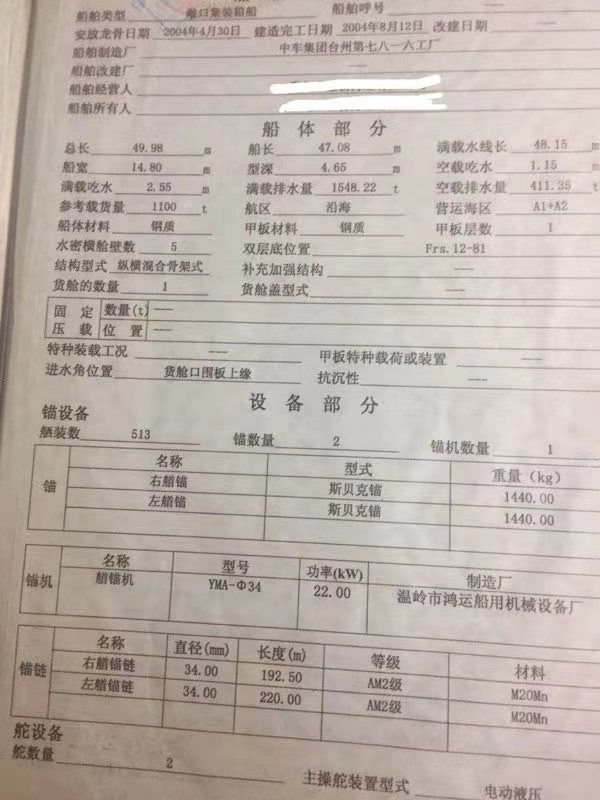 船舶类型 敞口集装箱船 船舶呼号 ——
安放龙骨日期 2004年4月30日 建造完工日期 2004年8月12日 改建日期 ——
船舶制造厂 中车集团台州第七八一六工厂
船舶改建厂 ——
船舶经营人
船舶所有人
船 体 部 分
总长 49.98 m 船长 47.08 m 满载水线长 48.15 m
船宽 14.80 m 型深 4.65 m 空载吃水 1.15 m
满载吃水 2.55 m 满载排水量 1548.22 t 空载排水量 411.35 t
参考载货量 1100 t 航区 沿海 营运海区 A1+A2
船体材料 钢质 甲板材料 钢质 甲板层数 1
水密横舱壁数 5 双层底位置 Frs.12-81
结构型式 纵横混合骨架式 补充加强结构 ——
货舱的数量 1 货舱盖型式 ——
固 定 数量(t) ——
压 载 位 置 ——
特种装载工况 —— 甲板特种载荷或装置 ——
进水角位置 货舱口围板上缘 抗沉性 ——
设 备 部 分
锚设备
舾装数 513 锚数量 2 锚机数量 1
锚 名称 型式 重量（kg）
右艏锚 斯贝克锚 1440.00
左艏锚 斯贝克锚 1440.00
锚机 名称 型号 功率(kW) 制造厂
艏锚机 YMA-Φ34 22.00 温岭市鸿运船用机械设备厂
锚链 名称 直径(mm) 长度(m) 等级 材料
右艏锚链 34.00 192.50 AM2级 M20Mn
左艏锚链 34.00 220.00 AM2级 M20Mn
舵设备
舵数量 2 主操舵装置型式 电动液压